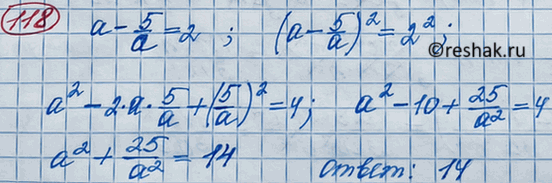 118 a - 5/a = 2 ; (a - 5/a)² = 2² ;
©reshak.ru
a² - 2·a·5/a + (5/a)² = 4; a² - 10 + 25/a² = 4
a² + 25/a² = 14 ответ: 14